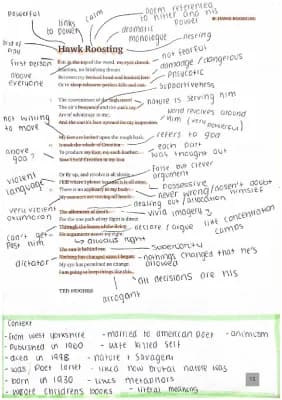 Powerful
links to power
calm
poem referenced to hitler and his power
dramatic monologue
nesting
Hawk Roosting
first person
above everyone
I sit in the top of the wood, my eyes closed.
Inaction, no falsifying dream
Between my hooked head and hooked feet:
Or in sleep rehearse perfect kills and eat.
not fearful
damage / dangerous
psychotic
supportiveness
The convenience of the high trees!
The air's buoyancy and the sun's ray
Are of advantage to me;
And the earth's face upward for my inspection.
nature is serving him
world revolves around him (very powerful)
not willing to move
My feet are locked upon the rough bark.
It took the whole of Creation
To produce my foot, my each feather:
Now I hold Creation in my foot
refers to god
each part was thought out
above god?
violent language
Or fly up, and revolve it all slowly -
I kill where I please because it is all mine.
There is no sophistry in my body:
My manners are tearing off heads -
false but clever argument
possessive
never wrong/doesn't doubt himself
dealing out / allocation
very violent oxymoron
The allotment of death.
For the one path of my flight is direct
Through the bones of the living.
No arguments assert my right:
vivid imagery
like concentration camps
declare / argue
can't get past him
always right
The sun is behind me.
Nothing has changed since I began.
My eye has permitted no change.
I am going to keep things like this.
superiority
nothings changed that he's allowed
dictator
all decisions are his
arrogant
TED HUGHES
Context
- from west yorkshire
- Published in 1960
- died in 1998
- was / poet laret
- born in 1930
- wrote childrens books
- married to american poet
- wife killed self
- nature + savagery
- liked how brutal nature was
- likes metaphors
- literal meaning
- animism